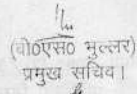 (बी०एस० भुल्लर)
प्रमुख सचिव।